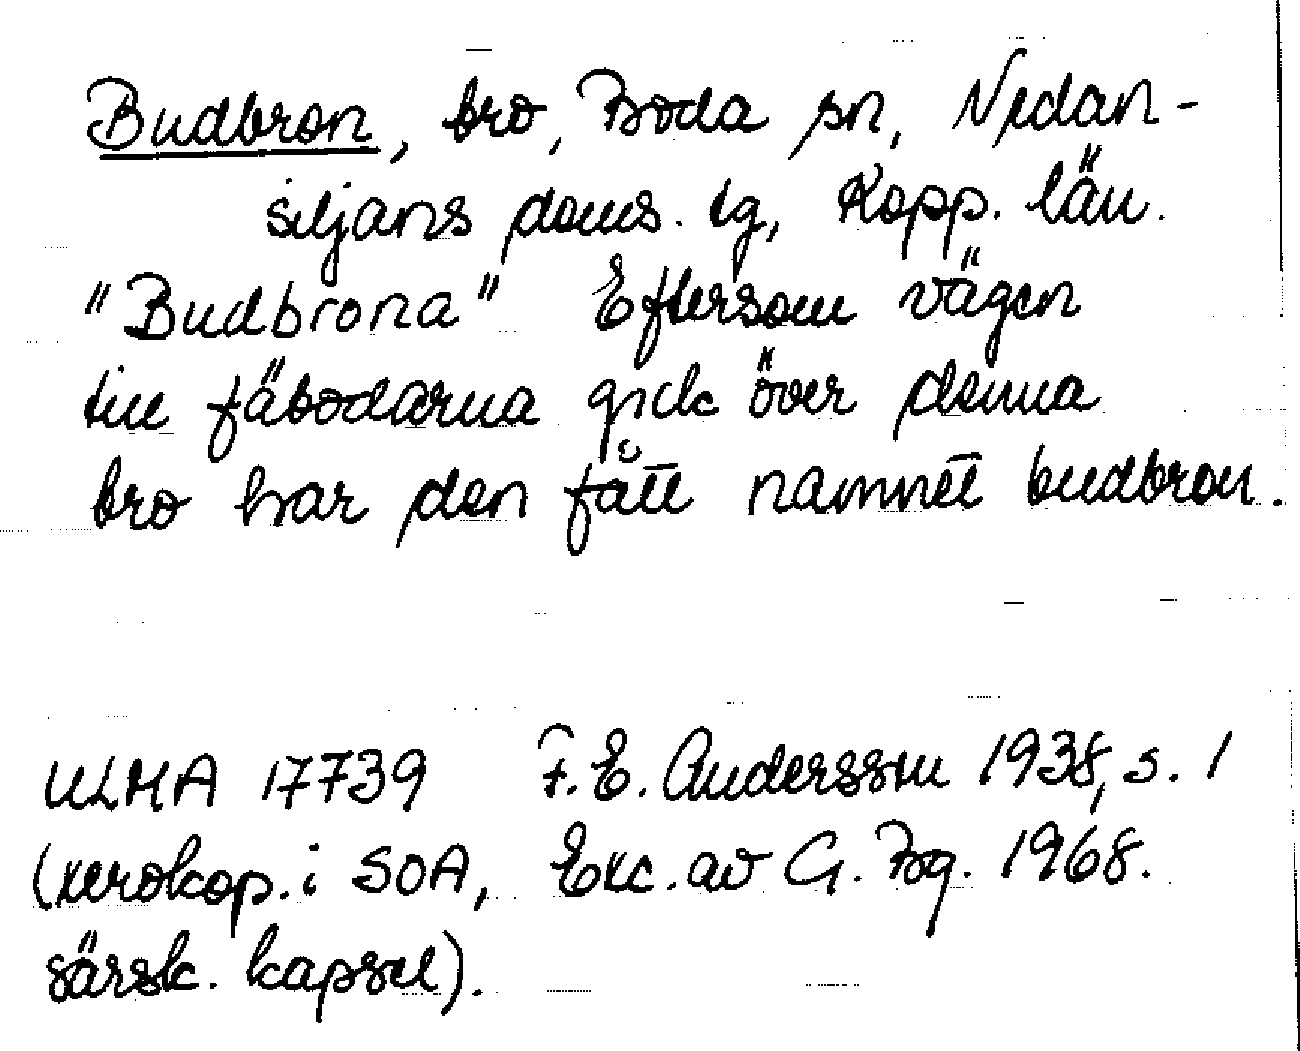 Budbron, bro, Boda sn, Nedan-
siljans doms. tg, Kopp. län.
"Budbrona" Eftersom vägen
till fäbodarna gick över denna
bro har den fått namnet budbron.
ULMA 17739 F.E. Andersson 1938, s. 1
(xerokop. i SOA, Exc. av G. Bg. 1968.
särsk. kapsel).